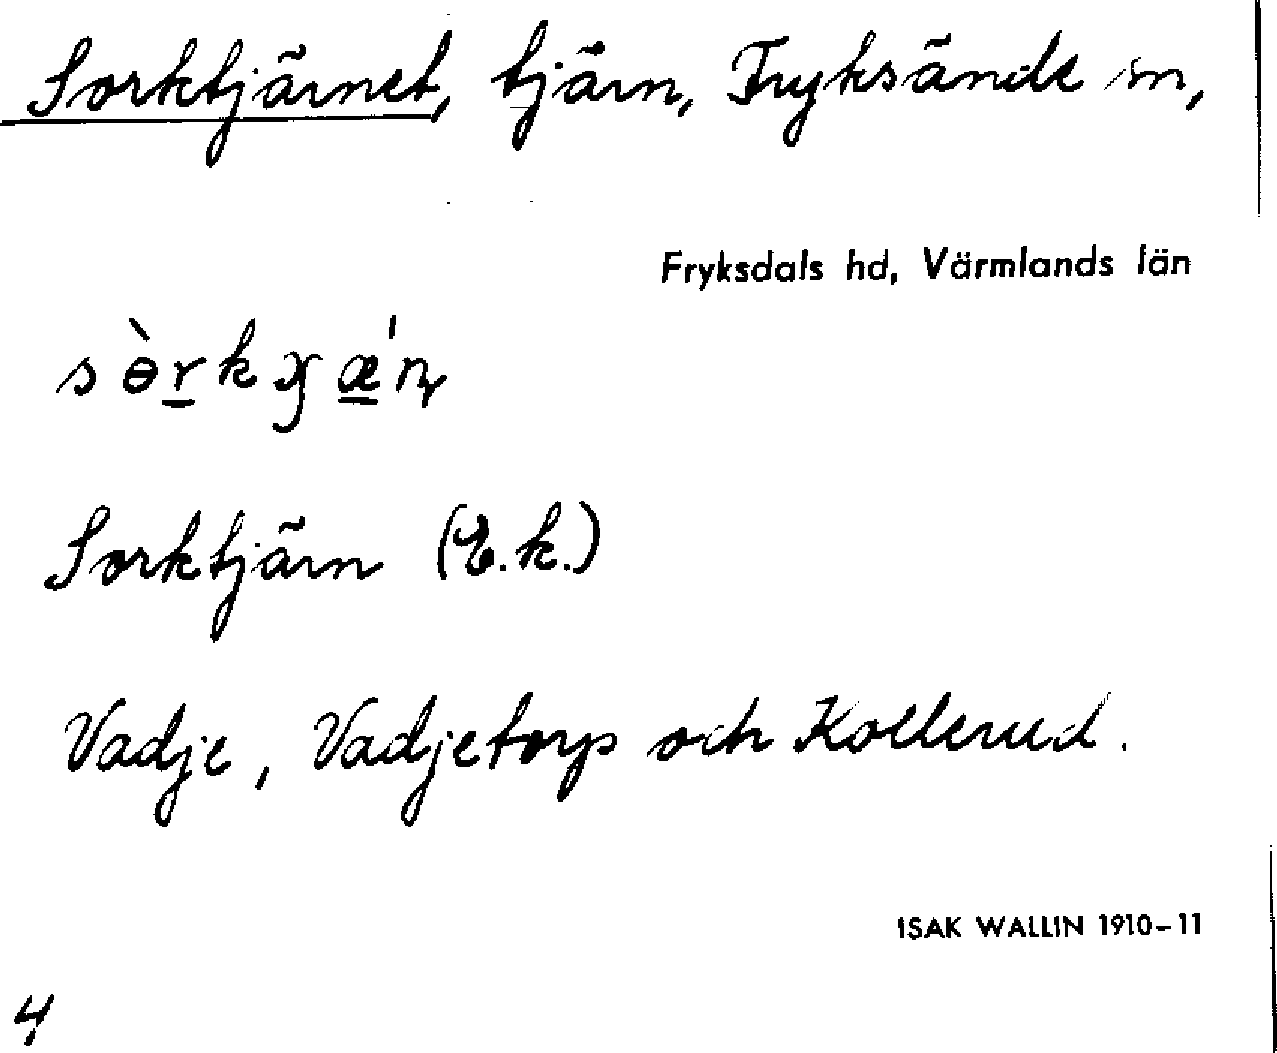 Sorktjärnet, tjärn, Fryksände sn,
Fryksdals hd, Värmlands län
Sorktjärn (E.k.)
Vadje, Vadjetorp och Kollerud.
ISAK WALLIN 1910-11
4